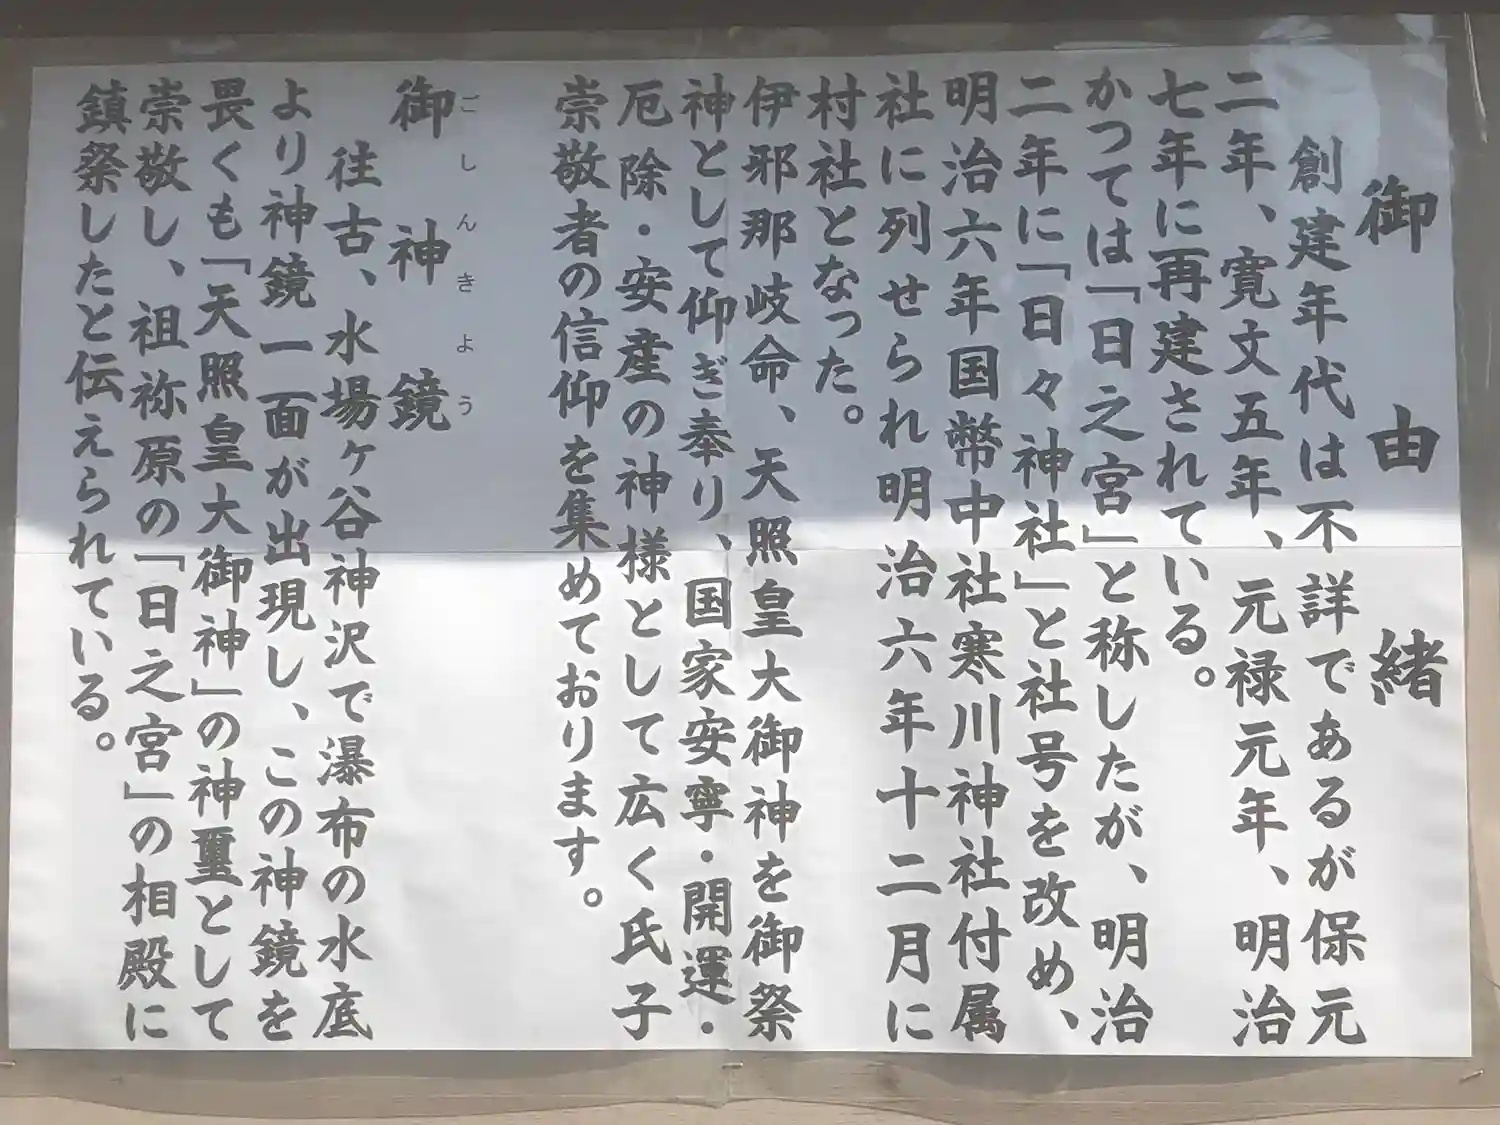 御由緒
創建年代は不詳であるが保元
二年、寛文五年、元禄元年、明治
七年に再建されている。
かつては「日之宮」と称したが、明治
二年に「日々神社」と社号を改め、
明治六年国幣中社寒川神社付属
社に列せられ明治六年十二月に
村社となった。
伊邪那岐命、天照皇大御神を御祭
神として仰ぎ奉り、国家安寧・開運・
厄除・安産の神様として広く氏子
崇敬者の信仰を集めております。
御神鏡
ごしんきよう
往古、水場ヶ谷神沢で瀑布の水底
より神鏡一面が出現し、この神鏡を
畏くも「天照皇大御神」の神璽として
崇敬し、祖祢原の「日之宮」の相殿に
鎮祭したと伝えられている。